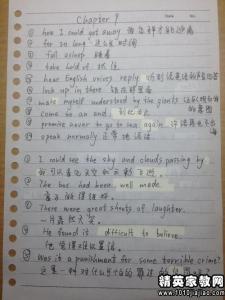 Chapter 9
how I could get away 我怎样才能逃离
for so long 这么长时间
fall asleep 睡着
take hold of 抓住
hear English voices reply 听到说英语的声音回答
lock up in there 锁在那里面
make myself understood by the giants 让巨人明白我的意思
come to an end 到此为止
promise never to go to sea again 许诺再也不出海
speak normally 正常地说话
I could see the sky and clouds passing by
The box had been well made.
There were great shouts of laughter.
一片轰然大笑。
He found it difficult to believe.
他觉得难以置信。
Was it a punishment for some terrible crime?
精英家教网
www.1010jiajiao.com